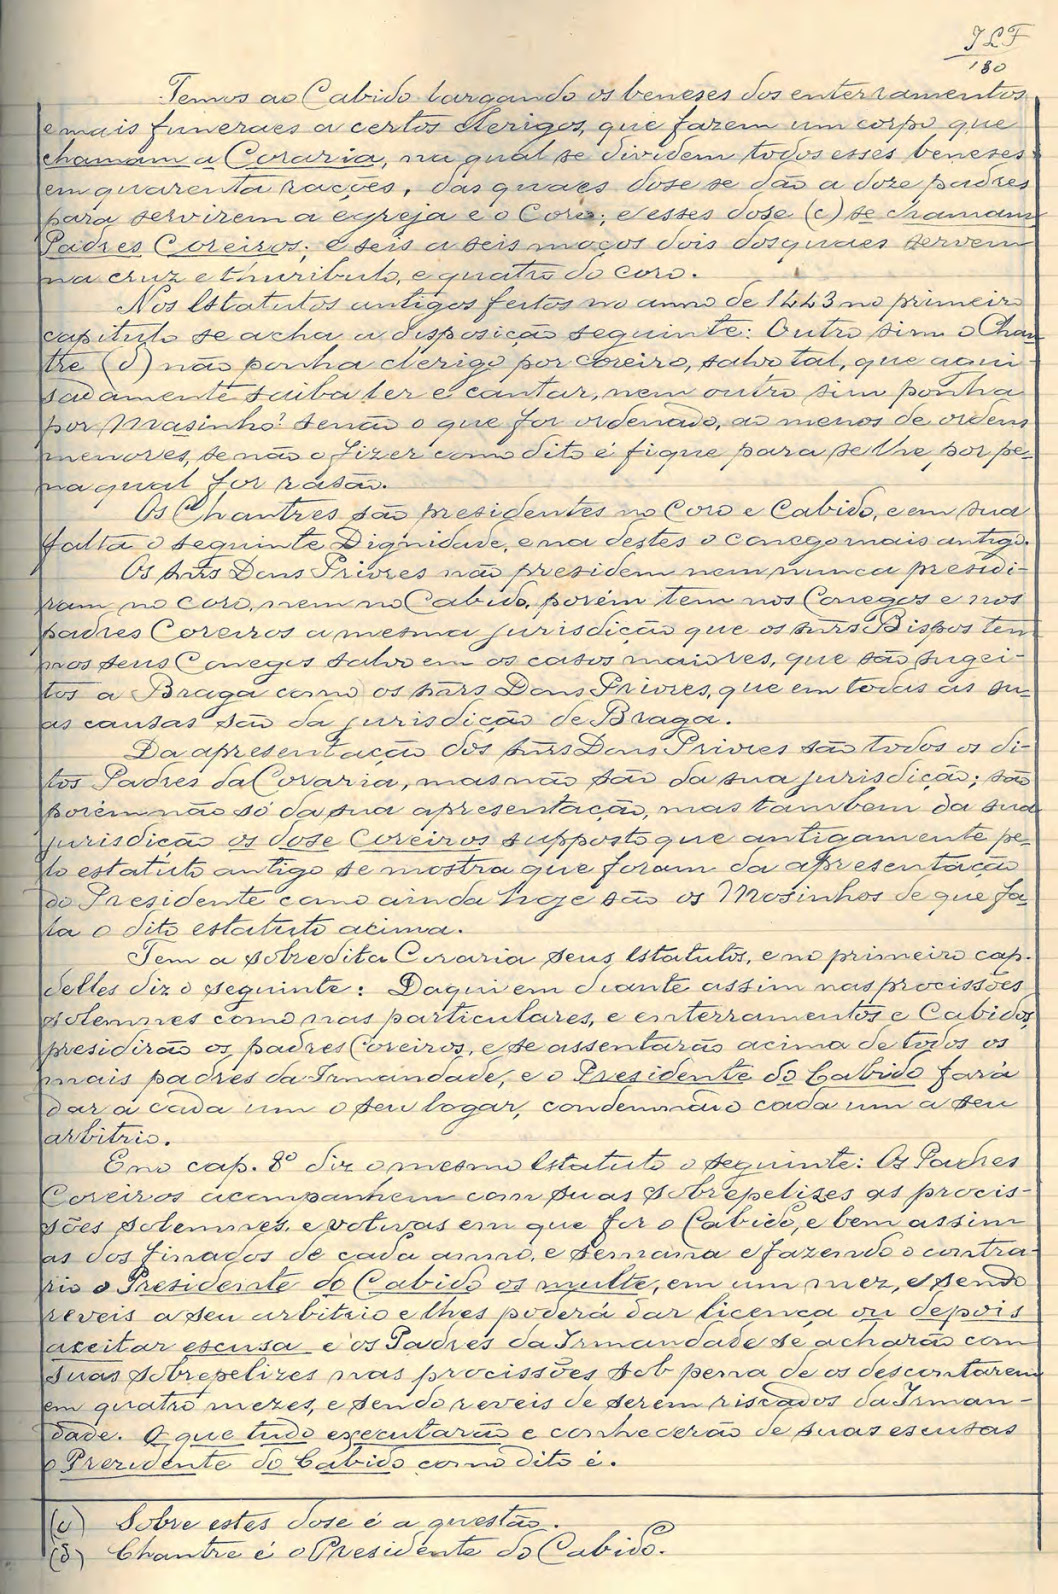 JLF
180
Temos ao Cabido largando os beneses dos enterramentos
e mais funeraes a certos clerigos, que fazem um corpo que
chamam a Coraria, na qual se dividem todos esses beneses
em quarenta rações, das quaes dose se dão a doze padres
para servirem a egreja e o Coro; e esses dose (c) se chamam
Padres Coreiros; e seis a seis moços dois dos quaes servem
na cruz e thuribulo, e quatro do coro.
Nos Estatutos antigos feitos no anno de 1443 no primeiro
capitulo se acha a disposição seguinte: Outro sim o Chan
tre (d) não ponha clerigo por coreiro, salvo tal, que agui-
sadamente saiba ler e cantar, nem outro sim ponha
por Masinho? senão o que for ordenado, ao menos de ordens
menores, se não o fizer como dito é fique para se lhe por pe-
na qual for rasão.
Os Chantres são presidentes no Coro e Cabido, e em sua
falta o seguinte Dignidade, e na destes o conego mais antigo.
Os snrs Dons Priores não presidem nem nunca presidi-
ram no coro, nem no Cabido, porém tem nos Conegos e nos
padres Coreiros a mesma jurisdição que os snrs Bispos tem
nos seus Conegos salvo em os casos maiores, que são sugei-
tos a Braga como os snrs Dons Priores, que em todas as su-
as causas são da jurisdição de Braga.
Da apresentação dos snrs Dons Priores são todos os di-
tos Padres da Coraria, mas não são da sua jurisdição; são
porém não só da sua apresentação, mas tambem da sua
jurisdição os dose Coreiros supposto que antigamente pe-
lo estatuto antigo se mostra que foram da apresentação
do Presidente como ainda hoje são os Mosinhos de que fa-
la o dito estatuto acima.
Tem a sobredita Coraria seus Estatutos, e no primeiro cap.
delles diz o seguinte: Daqui em diante assim nas procissões
solemnes como nas particulares, e enterramentos e Cabidos,
presidirão os padres Coreiros, e se assentarão acima de todos os
mais padres da Irmandade, e o Presidente do Cabido fará
dar a cada um o seu logar, condemnão cada um a seu
arbitrio.
E no cap. 8º diz o mesmo Estatuto o seguinte: Os Padres
Coreiros acompanhem com suas sobrepelizes as procis-
sões solemnes e votivas em que for o Cabido, e bem assim
as dos finados de cada anno, e semana e fazendo o contra-
rio o Presidente do Cabido os multe, em um mez, e sendo
reveis a seu arbitrio e lhes poderá dar licença ou depois
aceitar escusa e os Padres da Irmandade se acharão com
suas sobrepelizes nas procissões sob pena de os descontarem
em quatro mezes, e sendo reveis de serem riscados da Irman-
dade. O que tudo executarão e conhecerão de suas escusas
o Prezidente do Cabido como dito é.
(c) Sobre estes dose é a questão.
(d) Chantre é o Presidente do Cabido.